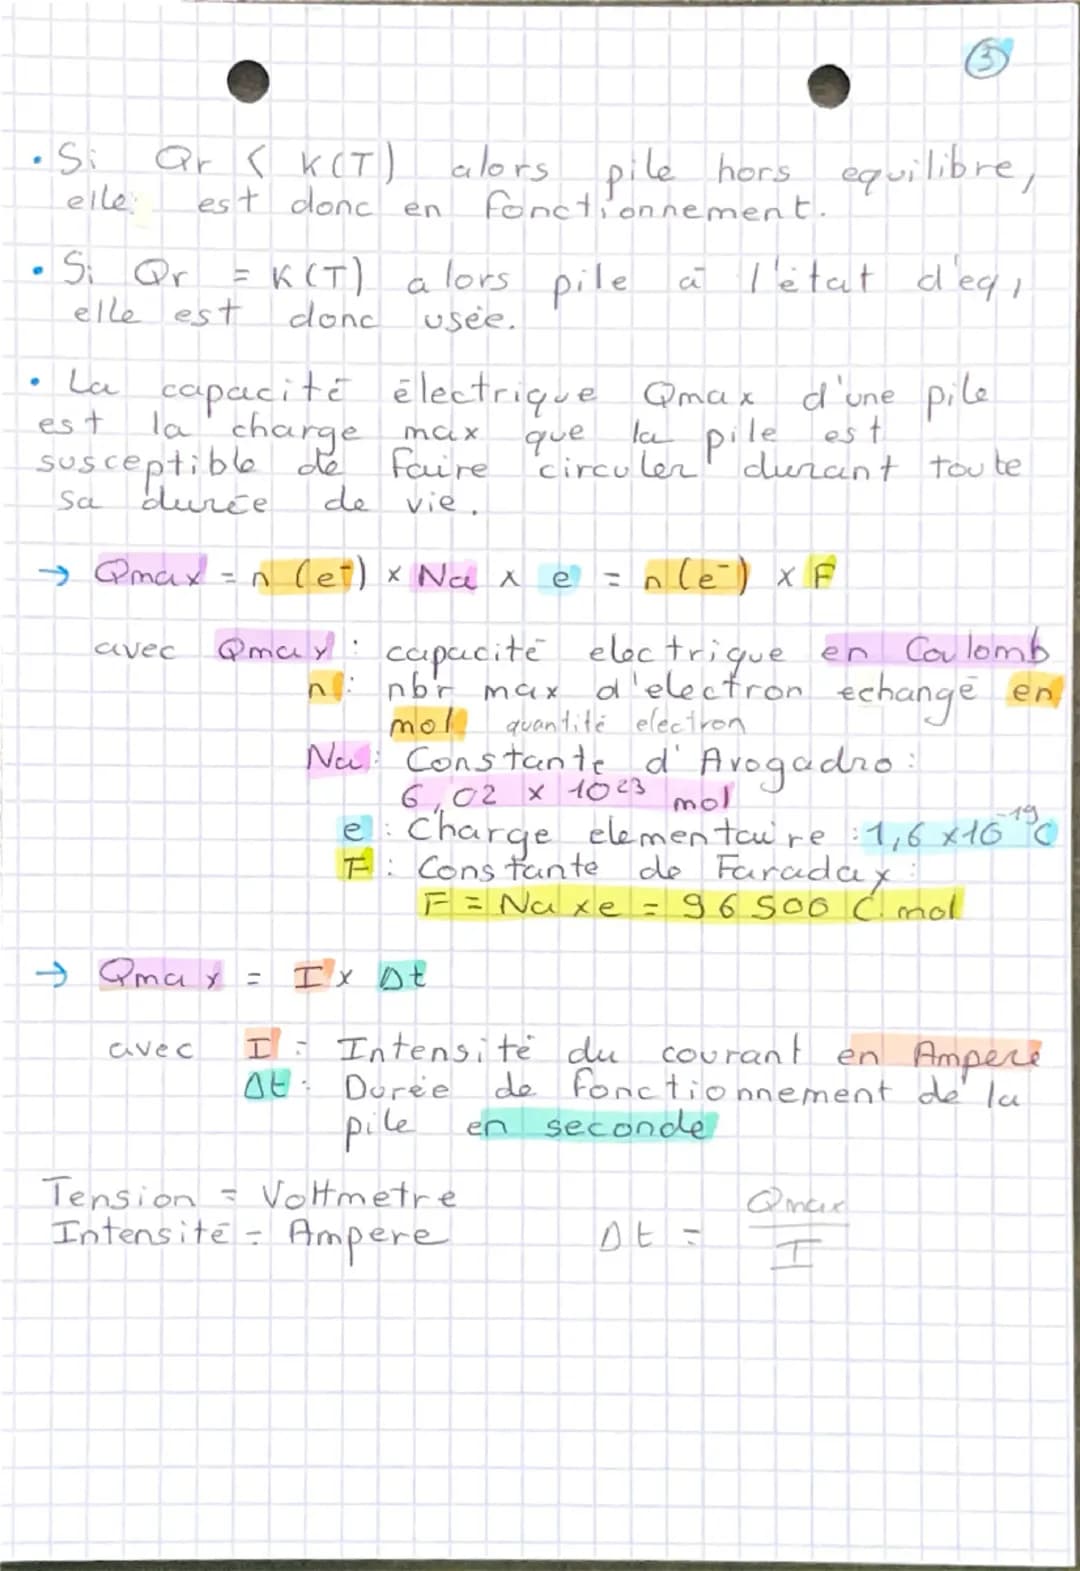 3
• Si Qr < K(T) alors pile hors equilibre,
elle est donc en fonctionnement.
• Si Qr = K(T) alors pile à l'état d'eq,
elle est donc usée.
• La capacité électrique Qmax d'une pile
est la charge max que la pile est
susceptible de faire circuler durant toute
sa durée de vie.
→ Qmax = n(e⁻) × Na × e = n(e⁻) × F
avec Qmax : capacité electrique en Coulomb
n : nbr max d'electron echangé en
mol quantité electron
Na : Constante d'Avogadro :
6,02 × 10²³ mol
e : Charge elementaire : 1,6 ×10⁻¹⁹ C
F : Constante de Faraday :
F = Na xe = 96 500 C. mol
→ Qmax = I × Δt
avec I : Intensité du courant en Ampere
Δt : Durée de fonctionnement de la
pile en seconde
Tension = Voltmetre
Intensité = Ampere
Δt = Qmax
I